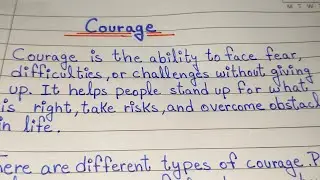 Courage
Courage is the ability to face fear,
difficulties, or challenges without giving
up. It helps people stand up for what
is right, take risks, and overcome obstacl
in life.
here are different types of courage. P